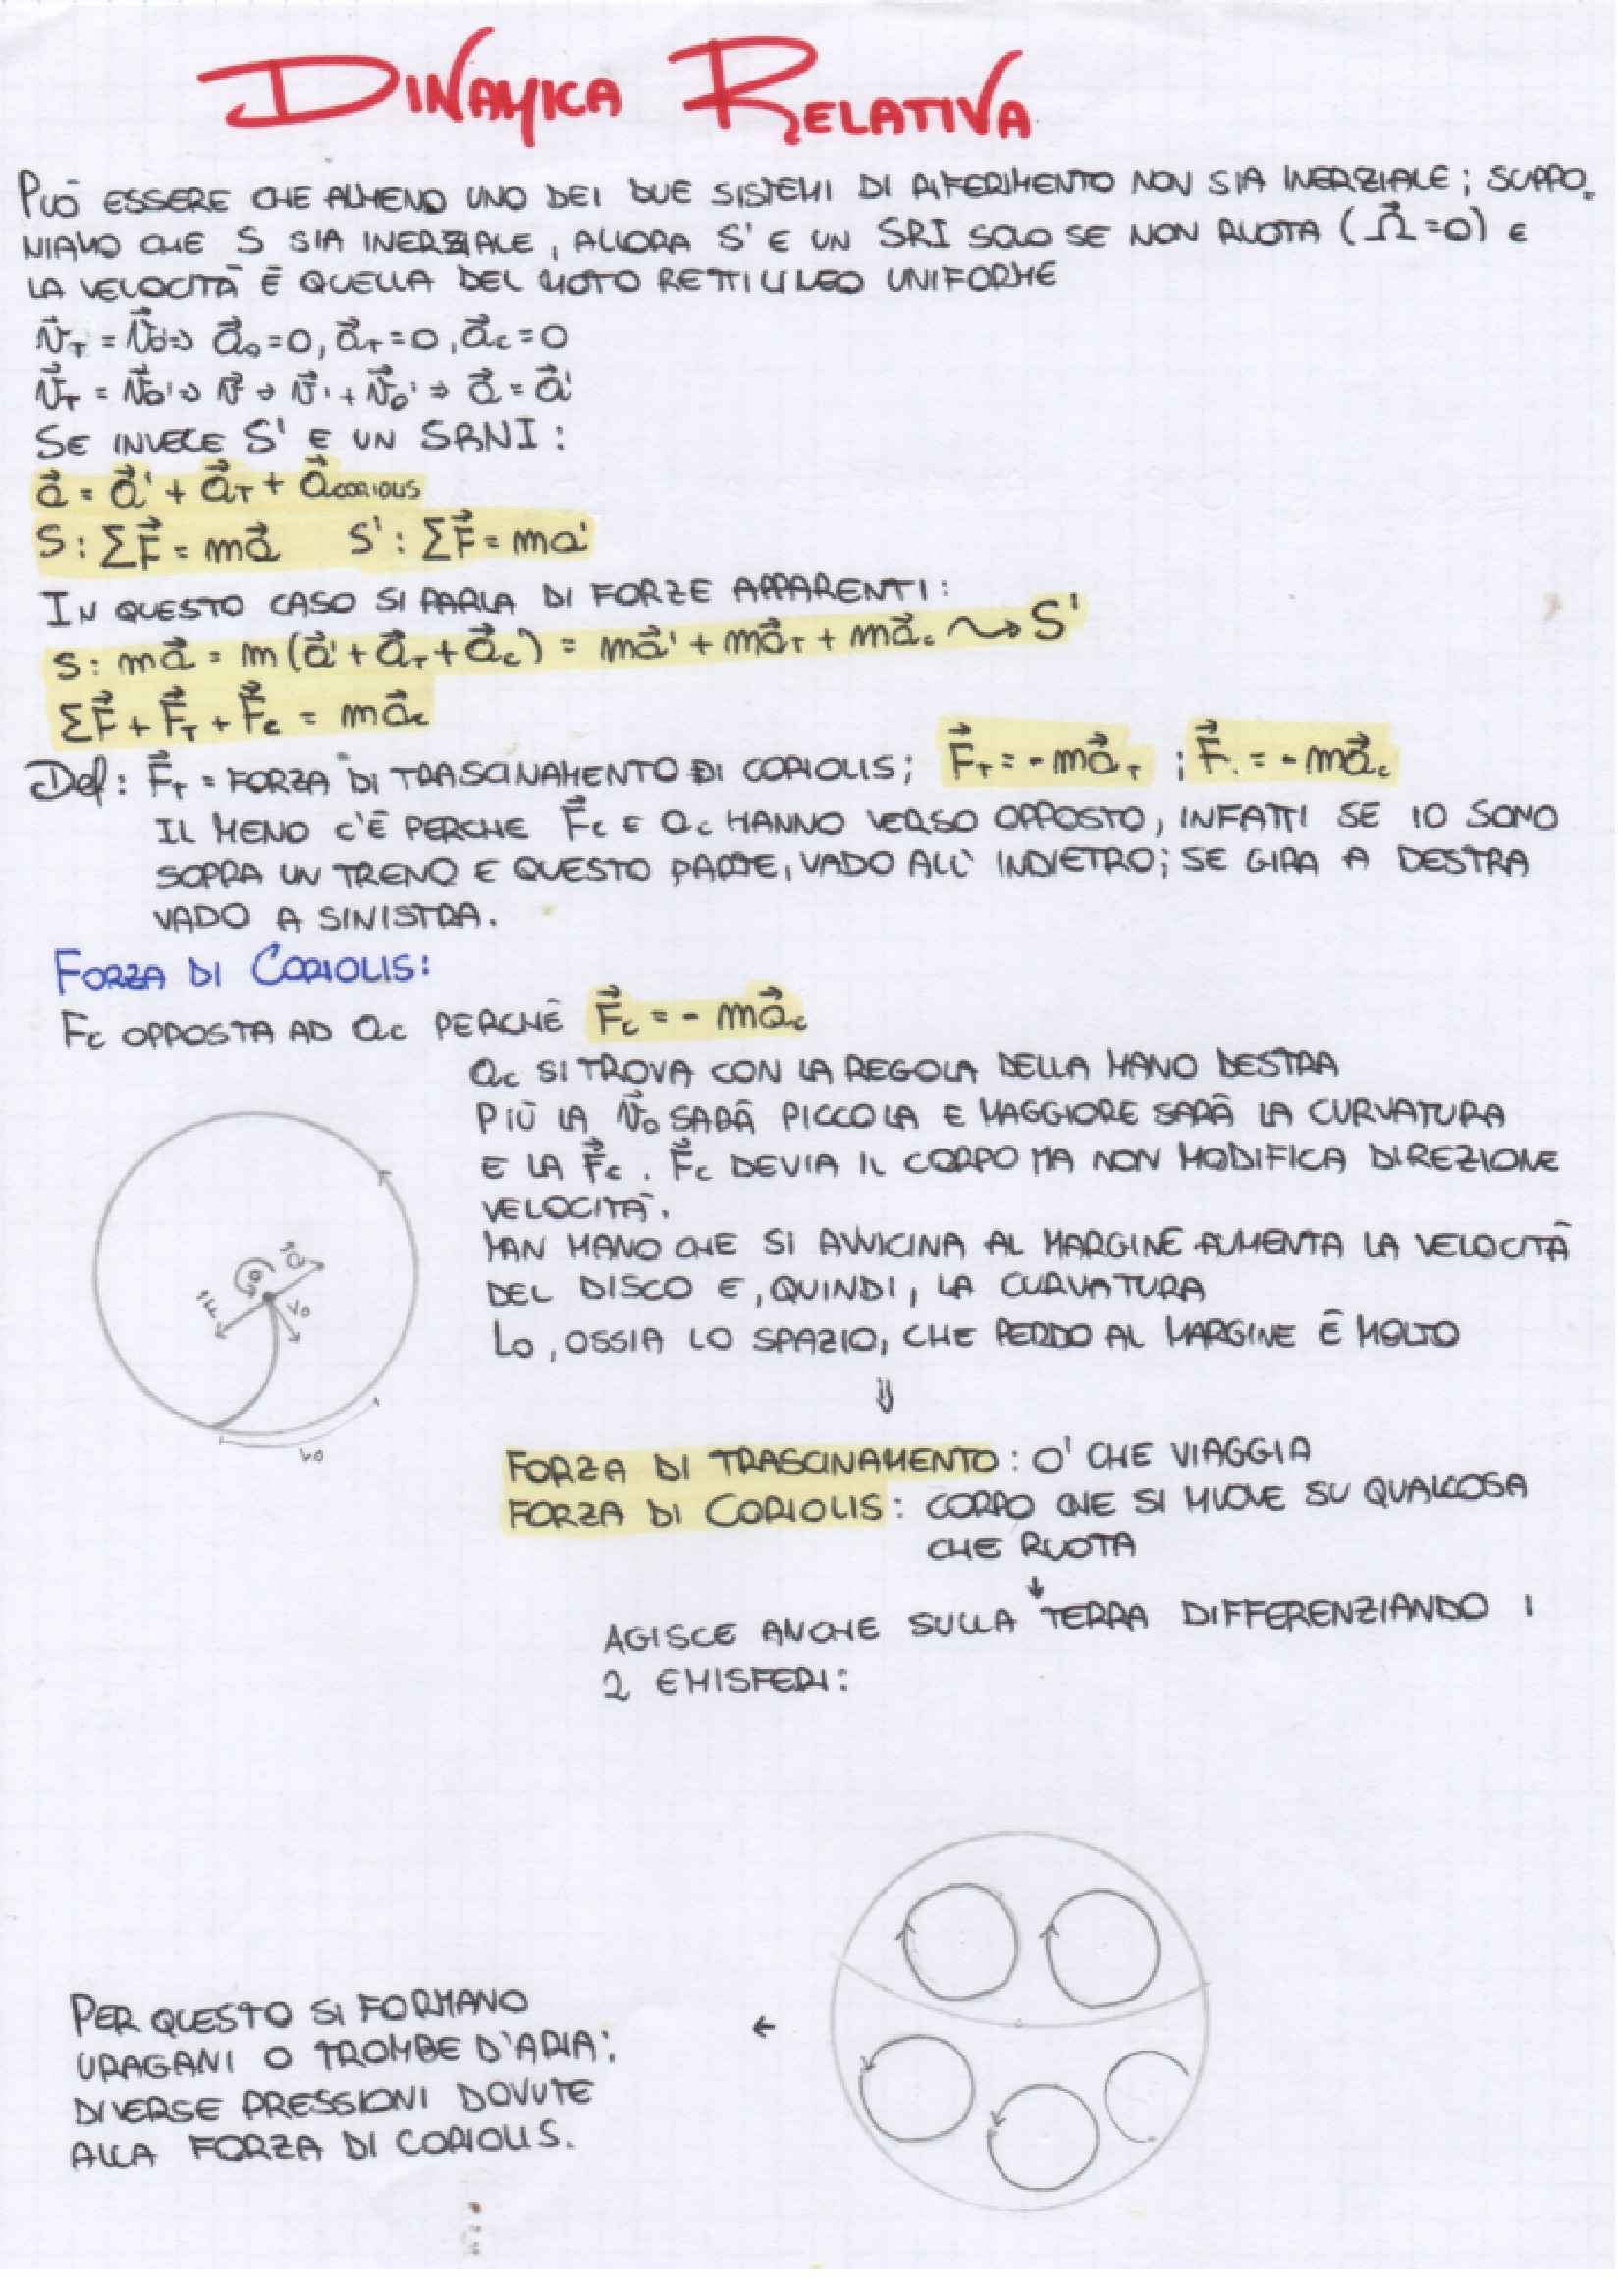 DINAMICA RELATIVA
PUÒ ESSERE CHE ALMENO UNO DEI DUE SISTEMI DI RIFERIMENTO NON SIA INERZIALE; SUPPO-
NIAMO CHE S SIA INERZIALE, ALLORA S' E UN SRI SOLO SE NON RUOTA (Ω⃗=0) E
LA VELOCITÀ È QUELLA DEL MOTO RETTILINEO UNIFORME
v⃗T = v⃗0' ⇒ a⃗0=0, a⃗T=0, a⃗c=0
v⃗T = v⃗0' ⇒ v⃗ → v⃗' + v⃗0' ⇒ a⃗ = a⃗'
SE INVECE S' E UN SRNI:
a⃗ = a⃗' + a⃗T + a⃗CORIOLIS
S: ΣF⃗ = ma⃗ S': ΣF⃗ = ma'
IN QUESTO CASO SI PARLA DI FORZE APPARENTI:
S: ma⃗ = m(a⃗' + a⃗T + a⃗c) = ma⃗' + ma⃗T + ma⃗c ⇝ S'
ΣF⃗ + F⃗T + F⃗c = ma⃗c
Def: F⃗T = FORZA DI TRASCINAMENTO DI CORIOLIS; F⃗T = - ma⃗T ; F⃗. = - ma⃗c
IL MENO C'È PERCHE F⃗c E ac HANNO VERSO OPPOSTO, INFATTI SE IO SONO
SOPRA UN TRENO E QUESTO PARTE, VADO ALL'INDIETRO; SE GIRA A DESTRA
VADO A SINISTRA.
FORZA DI CORIOLIS:
Fc OPPOSTA AD ac PERCHÈ F⃗c = - ma⃗c
ac SI TROVA CON LA REGOLA DELLA MANO DESTRA
PIÙ LA v⃗0 SARÀ PICCOLA E MAGGIORE SARÀ LA CURVATURA
E LA F⃗c. F⃗c DEVIA IL CORPO MA NON MODIFICA DIREZIONE
VELOCITÀ.
MAN MANO CHE SI AVVICINA AL MARGINE AUMENTA LA VELOCITÀ
DEL DISCO E, QUINDI, LA CURVATURA
L0, OSSIA LO SPAZIO, CHE PERDO AL MARGINE È MOLTO
⇓
V0
L0
FORZA DI TRASCINAMENTO: O' CHE VIAGGIA
FORZA DI CORIOLIS: CORPO CHE SI MUOVE SU QUALCOSA
CHE RUOTA
↓
AGISCE ANCHE SULLA TERRA DIFFERENZIANDO I
2 EMISFERI:
PER QUESTO SI FORMANO ←
URAGANI O TROMBE D'ARIA:
DIVERSE PRESSIONI DOVUTE
ALLA FORZA DI CORIOLIS.